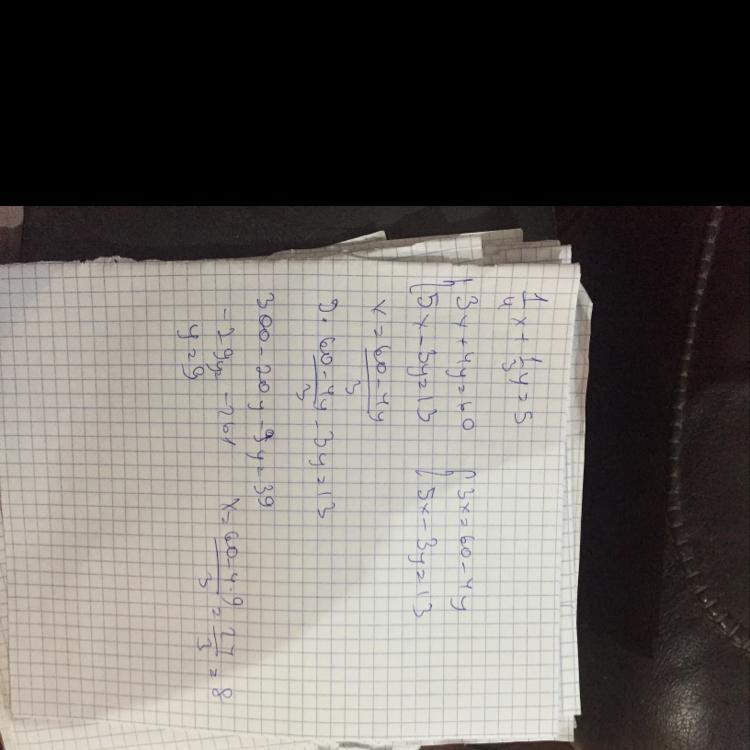 1/4 x + 1/3 y = 5
{ 3x + 4y = 60 { 3x = 60 - 4y
{ 5x - 3y = 13 { 5x - 3y = 13
x = (60 - 4y)/3
5 · (60 - 4y)/3 - 3y = 13
300 - 20y - 9y = 39
-29y = -261
y = 9 x = (60 - 4·9)/3 = 27/3 = 8